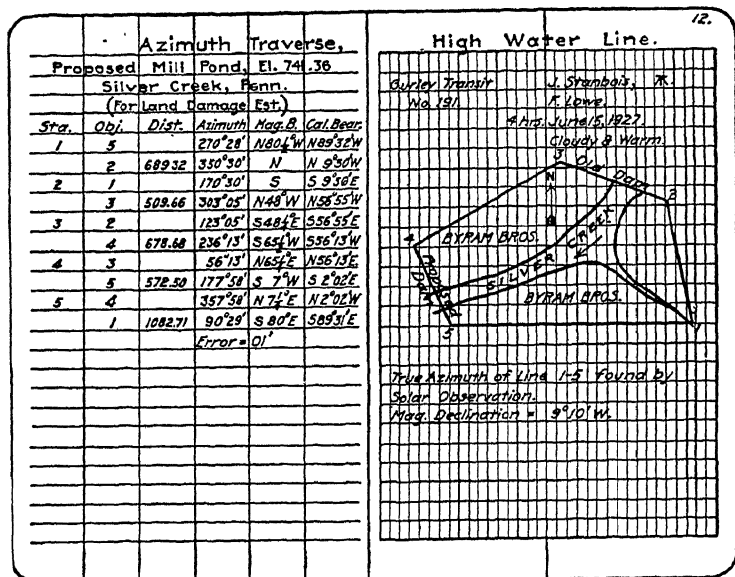 12.
Azimuth Traverse,
Proposed Mill Pond, El. 741.36
Silver Creek, Penn.
(For Land Damage Est.)
Sta. Obj. Dist. Azimuth Mag.B. Cal.Bear.
1 5 270°28' N80½°W N89°32'W
2 689.32 350°30' N N 9°30'W
2 1 170°30' S S 9°30'E
3 509.66 303°05' N48°W N56°55'W
3 2 123°05' S48½°E S56°55'E
4 678.68 236°13' S65½°W S56°13'W
4 3 56°13' N65½°E N56°13'E
5 572.50 177°58' S 7°W S 2°02'E
5 4 357°58' N 7½°E N 2°02'W
1 1082.71 90°29' S 80°E S89°31'E
Error = 01'
High Water Line.
Gurley Transit J. Stanbois,
No. 191. F. Lowe.
4 hrs. June 15, 1927.
Cloudy & Warm.
3 Old Dam
N
2
4 BYRAM BROS.
SILVER CREEK
Proposed Dam
BYRAM BROS.
5
1
True Azimuth of Line 1-5 found by
Solar Observation.
Mag. Declination = 9°10' W.